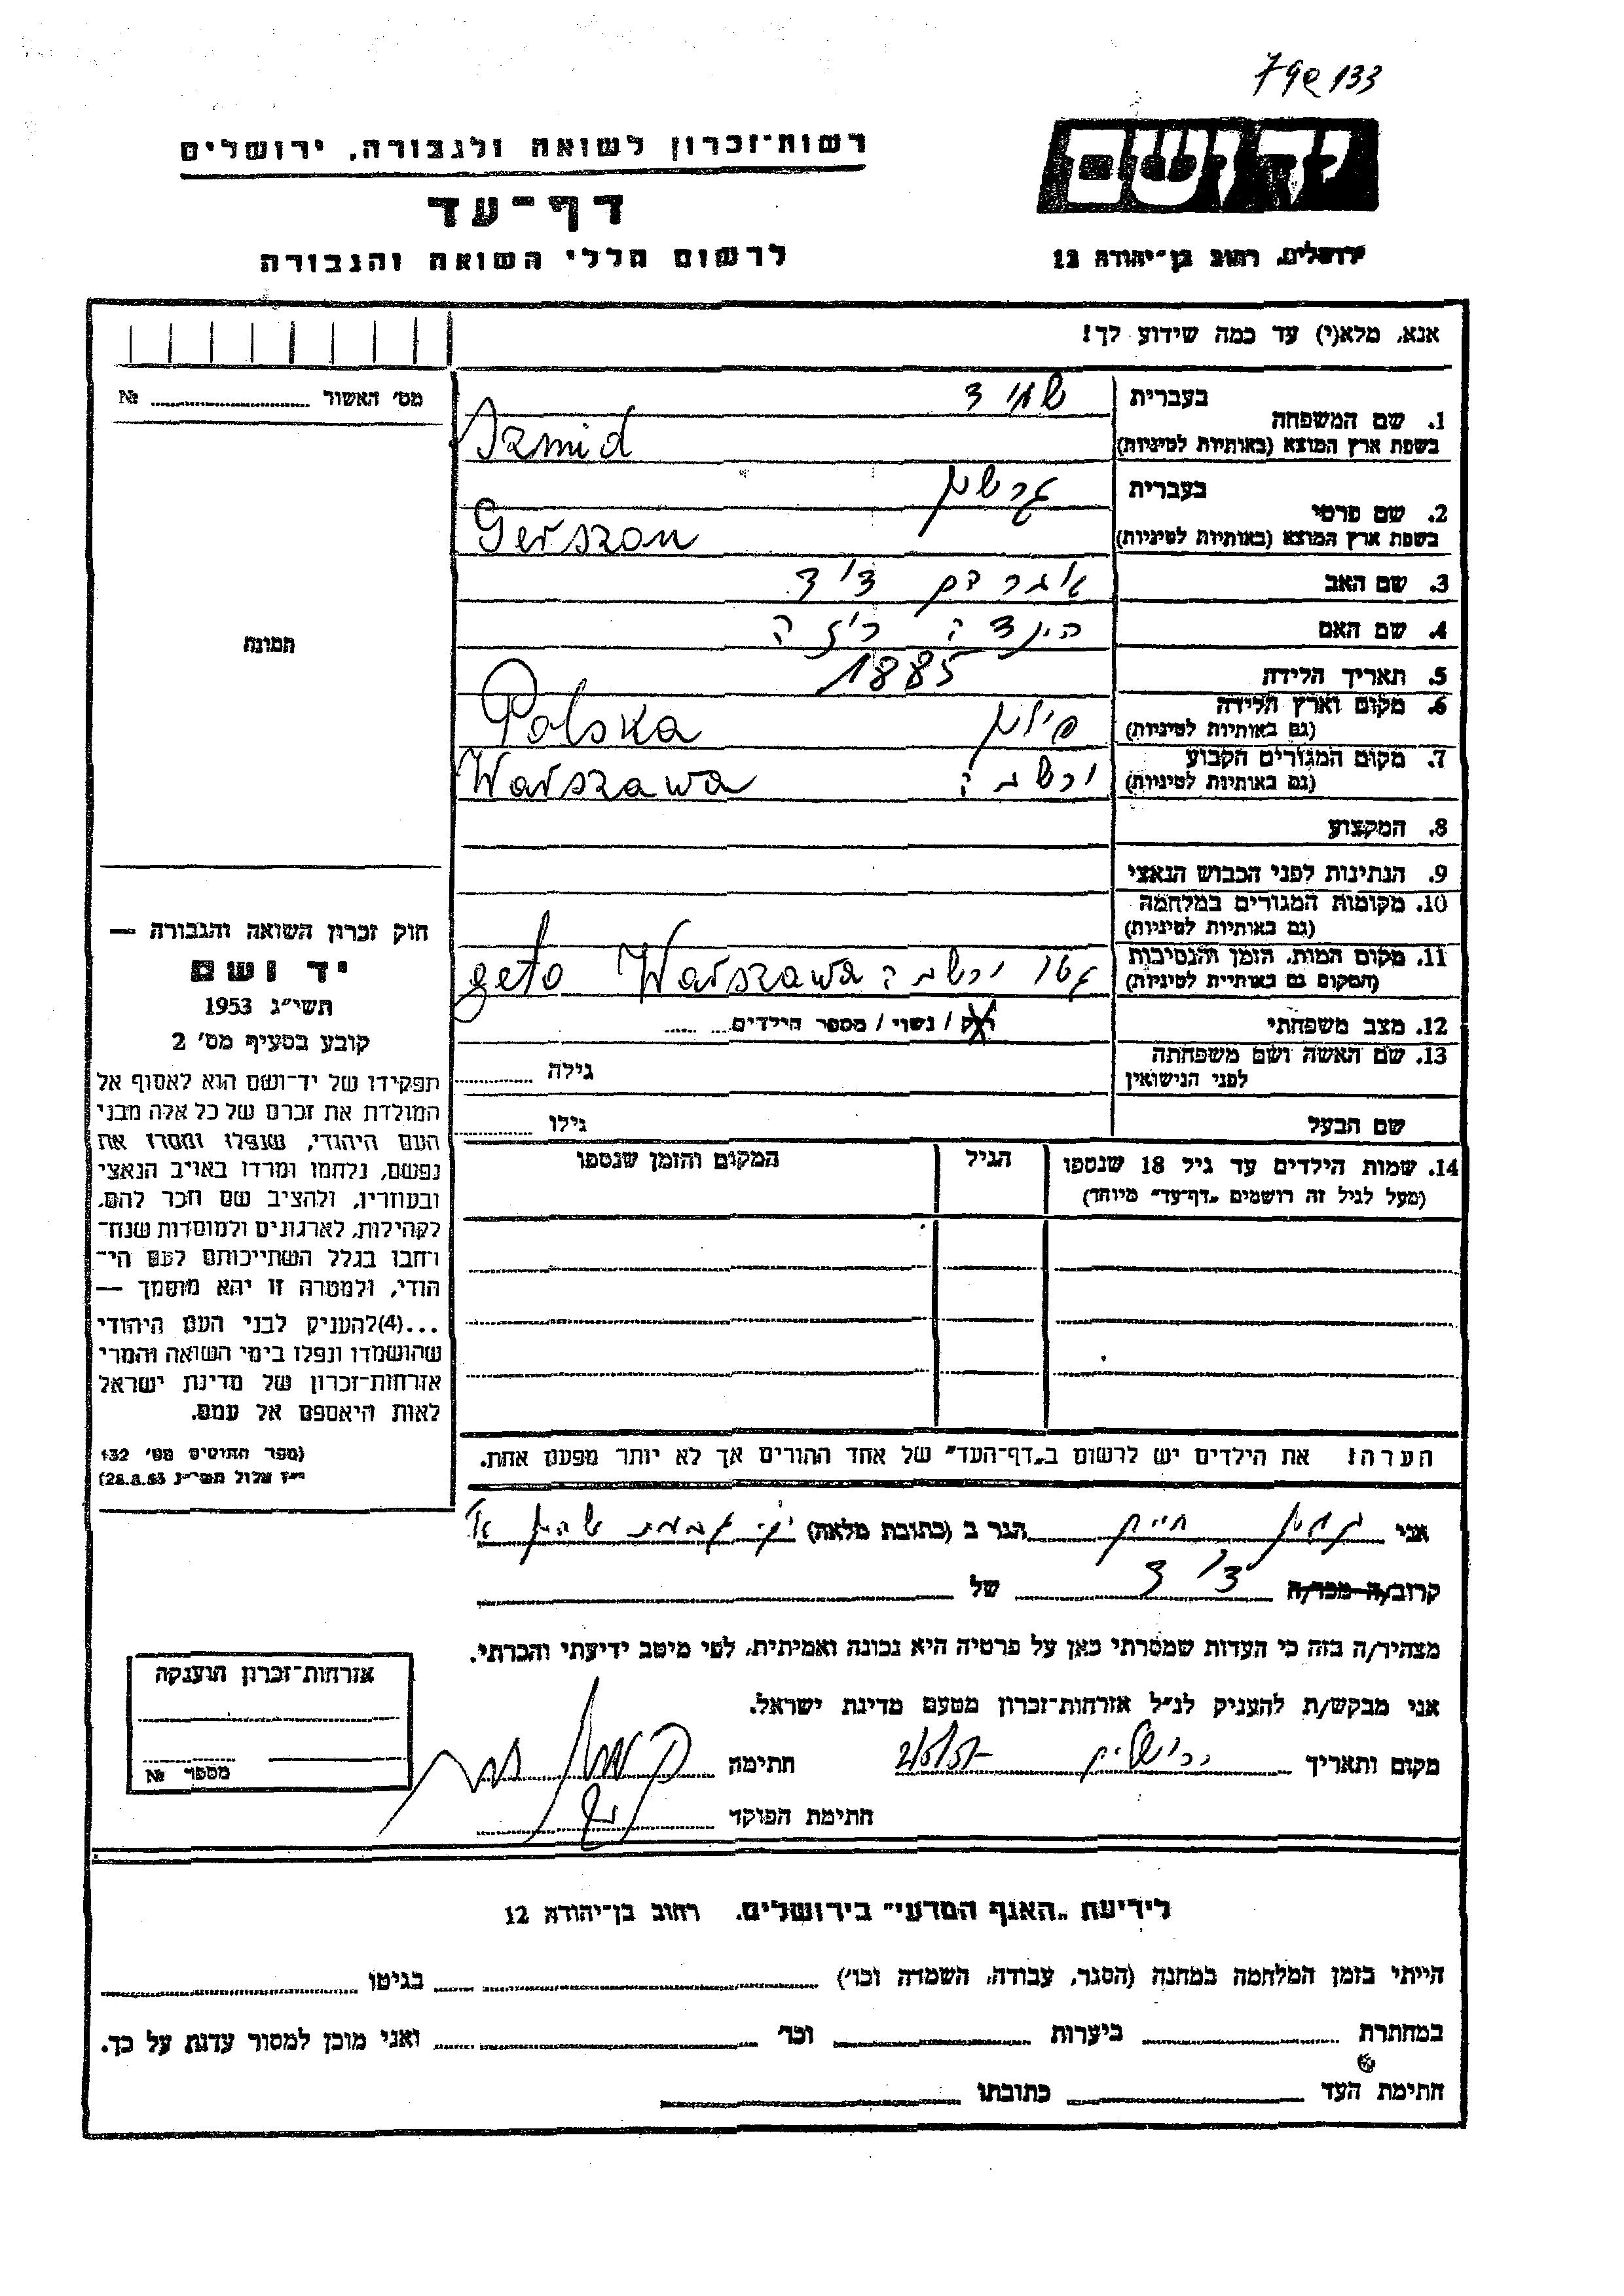 79@133
רשות־זכרון לשואה ולגבורה, ירושלים
יד ושם
דף־עד
לרשום חללי השואה והגבורה
ירושלים, רחוב בן־יהודה 12
אנא, מלא(י) עד כמה שידוע לך!
מס' האשור №
תמונה
1. שם המשפחה
בעברית שמיד
בשפת ארץ המוצא (באותיות לטיניות) Szmid
2. שם פרטי
בעברית גרשון
בשפת ארץ המוצא (באותיות לטיניות) Gerszon
3. שם האב
4. שם האם הינדה
5. תאריך הלידה 1885
6. מקום וארץ הלידה
(גם באותיות לטיניות) פולין Polska
7. מקום המגורים הקבוע
(גם באותיות לטיניות) ורשבה Warszawa
8. המקצוע
9. הנתינות לפני הכבוש הנאצי
10. מקומות המגורים במלחמה
(גם באותיות לטיניות)
11. מקום המות, הזמן והנסיבות
(המקום גם באותיות לטיניות) גטו ורשבה geto Warszawa
12. מצב משפחתי רוק / נשוי / מספר הילדים
13. שם האשה ושם משפחתה
לפני הנישואין גילה
שם הבעל גילו
14. שמות הילדים עד גיל 18 שנספו הגיל המקום והזמן שנספו
(מעל לגיל זה רושמים „דף־עד" מיוחד)
חוק זכרון השואה והגבורה —
יד ושם
תשי"ג 1953
קובע בסעיף מס' 2
תפקידו של יד־ושם הוא לאסוף אל
המולדת את זכרם של כל אלה מבני
העם היהודי, שנפלו ומסרו את
נפשם, נלחמו ומרדו באויב הנאצי
ובעוזריו, ולהציב שם וזכר להם,
לקהילות, לארגונים ולמוסדות שנח־
רחבו בגלל השתייכותם לעם הי־
הודי, ולמטרה זו יהא מוסמך —
...(4)להעניק לבני העם היהודי
שהושמדו ונפלו בימי השואה והמרי
אזרחות־זכרון של מדינת ישראל
לאות היאספם אל עמם.
(ספר החוקים מס' 132
י"ז אלול תשי"ג 28.8.53)
הערה! את הילדים יש לרשום ב„דף־העד" של אחד ההורים אך לא יותר מפעם אחת.
אני חיים הגר ב (כתובת מלאה)
קרוב/ה מכר/ה של
מצהיר/ה בזה כי העדות שמסרתי כאן על פרטיה היא נכונה ואמיתית, לפי מיטב ידיעתי והכרתי.
אני מבקש/ת להעניק לנ"ל אזרחות־זכרון מטעם מדינת ישראל.
מקום ותאריך ירושלים חתימה
חתימת הפוקד
אזרחות־זכרון הוענקה
מספר №
לידיעת „האגף המדעי" בירושלים, רחוב בן־יהודה 12
הייתי בזמן המלחמה במחנה (הסגר, עבודה, השמדה וכו') בגיטו
במחתרת ביערות וכו' ואני מוכן למסור עדות על כך.
חתימת העד כתובתו